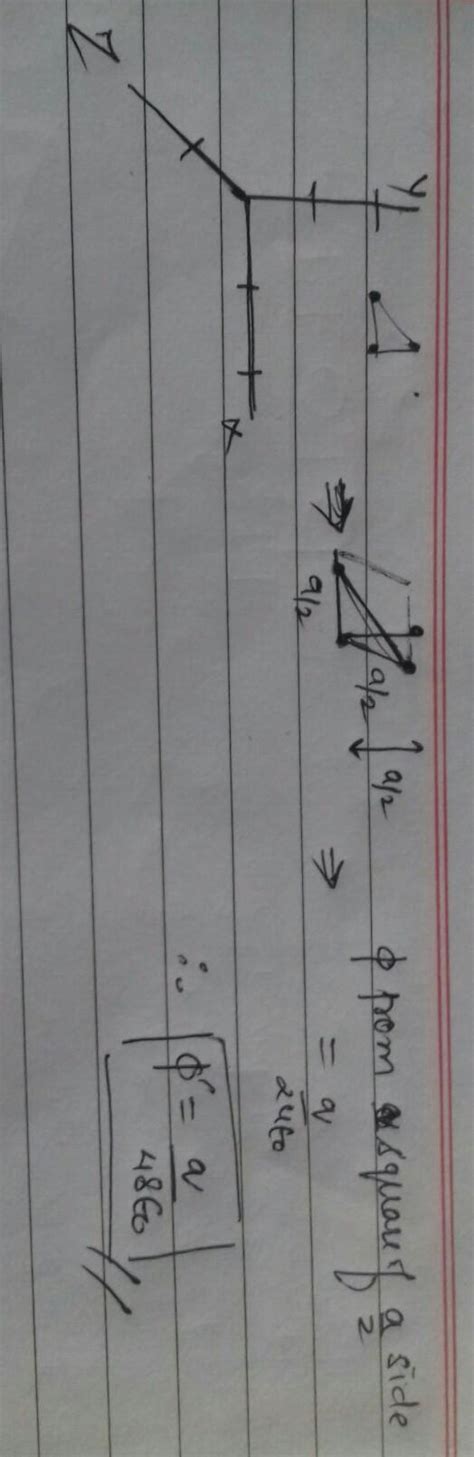 Y
X
Z
⇒
a/2
a/2
a/2
⇒ ϕ from square of a/2 side
= q/24ε₀
∴ ϕ = q/48ε₀